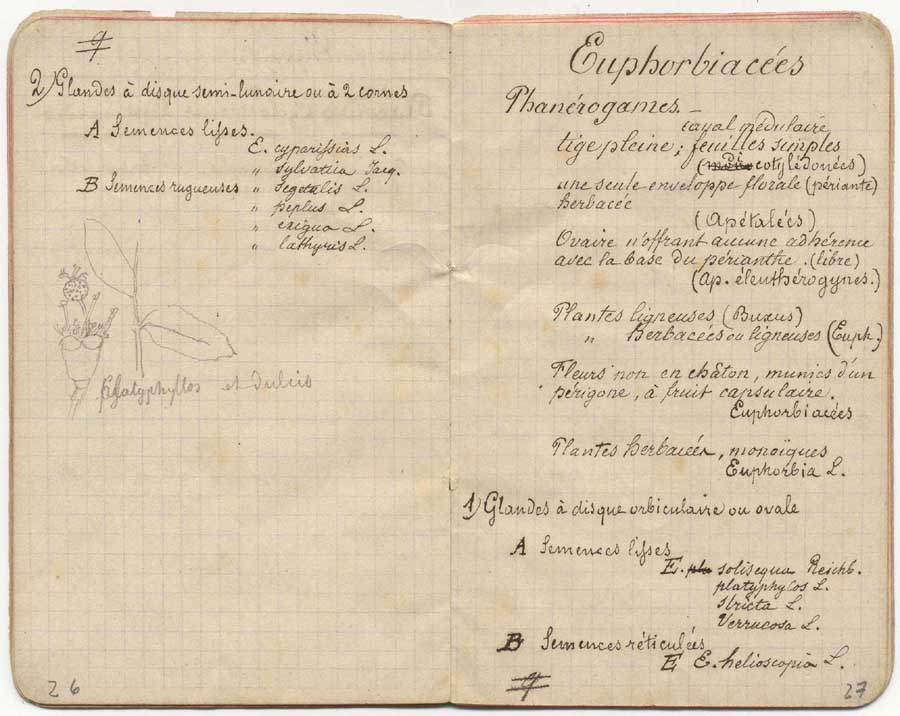 2) Glandes à disque semi-lunaire ou à 2 cornes
A Semences lisses.
E. cyparissias L.
" sylvatica Jacq.
B Semences rugueuses " segetalis L.
" peplus L.
" exigua L.
" lathyris L.
et dulcis
26
Euphorbiacées
Phanérogames. –
canal médulaire
tige pleine ; feuilles simples
(Dicotylédonées)
une seule enveloppe florale (périante)
herbacée
(Apétalées)
Ovaire n'offrant aucune adhérence
avec la base du périanthe. (libre)
(Ap. éleuthérogynes.)
Plantes ligneuses (Buxus)
" Herbacées ou ligneuses (Euph.)
Fleurs non en chaton, munies d'un
périgone, à fruit capsulaire.
Euphorbiacées
Plantes herbacées, monoïques
Euphorbia L.
1) Glandes à disque orbiculaire ou ovale
A Semences lisses
E. solisequa Reichb.
platyphylos L.
stricta L.
Verrucosa L.
B Semences réticulées
E E. helioscopia L.
27